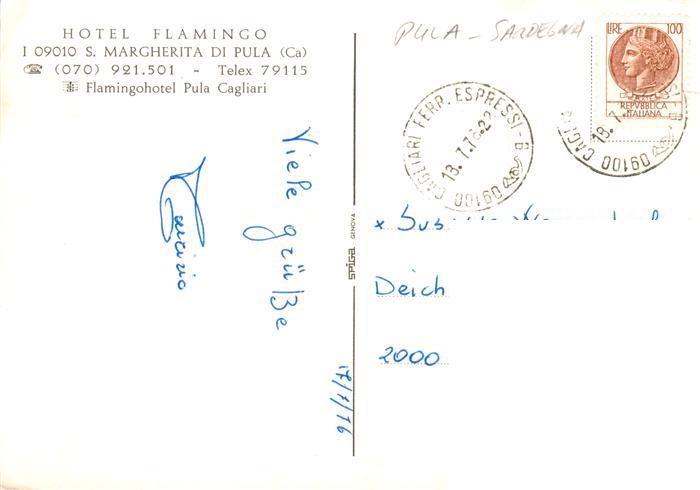 HOTEL FLAMINGO
I 09010 S. MARGHERITA DI PULA (Ca)
☎ (070) 921.501 - Telex 79115
Flamingohotel Pula Cagliari
PULA - SARDEGNA
LIRE 100
REPVBBLICA
ITALIANA
CAGLIARI FERR. ESPRESSI - 6
18.7.76.22
09100
09100 CAGLI
18.7
Viele grüße
SPIGA GENOVA
17/7/76
x Sus
Deich
2000